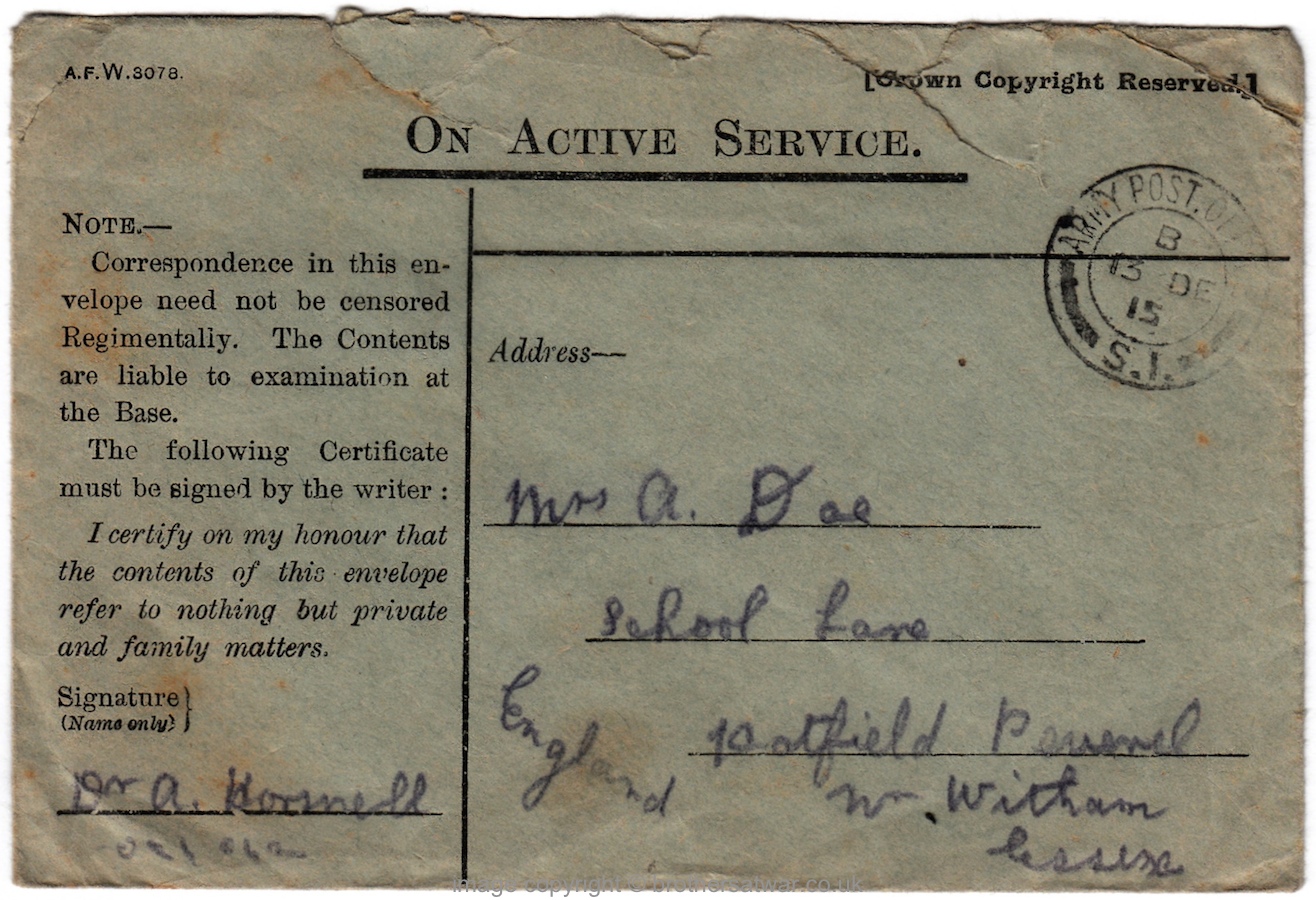 A.F.W.3078.
[Crown Copyright Reserved.]
ON ACTIVE SERVICE.
NOTE.—
Correspondence in this en-
velope need not be censored
Regimentally. The Contents
are liable to examination at
the Base.
The following Certificate
must be signed by the writer :
I certify on my honour that
the contents of this envelope
refer to nothing but private
and family matters.
Signature
(Name only)
Dr A. Horsnell
ARMY POST. OF
B
13 DE
15
S.1.
Address—
Mrs A. Doe
School Lane
England
Hatfield Peverel
Nr. Witham
Essex
image copyright © brothersatwar.co.uk